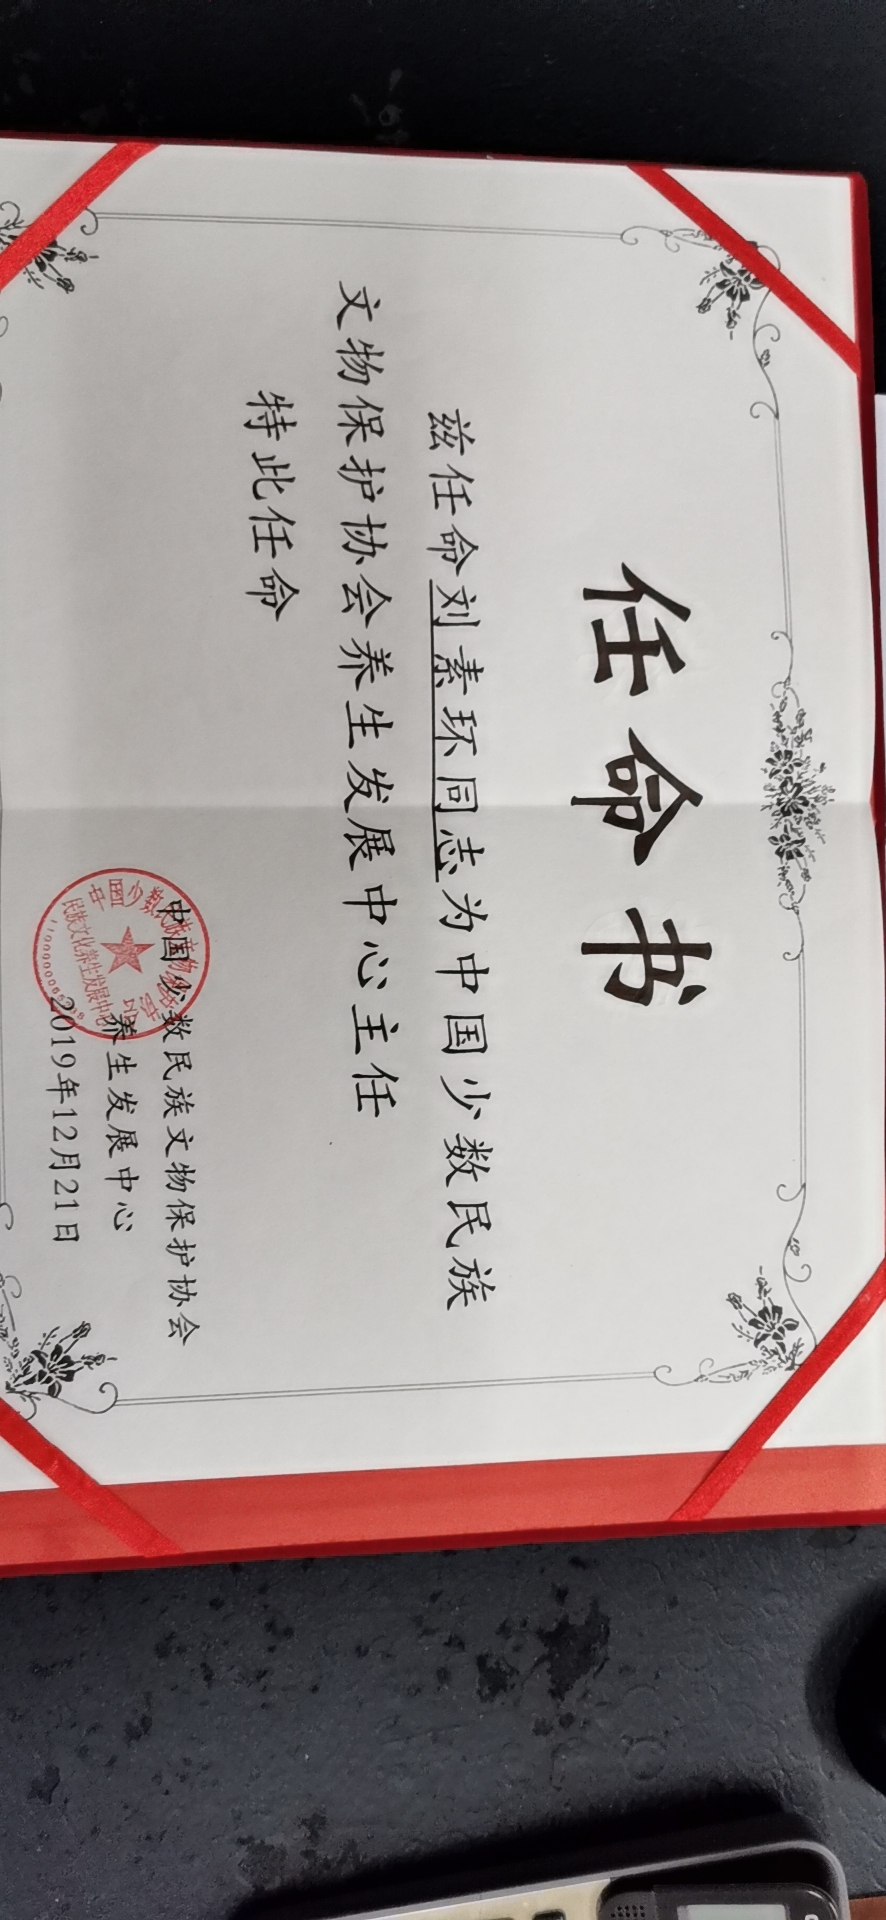 任命书
兹任命刘素环同志为中国少数民族
文物保护协会养生发展中心主任
特此任命
中国少数民族文物保护协会
养生发展中心
2019年12月21日
中国少数民族文物保护协会
民族文化养生发展中心